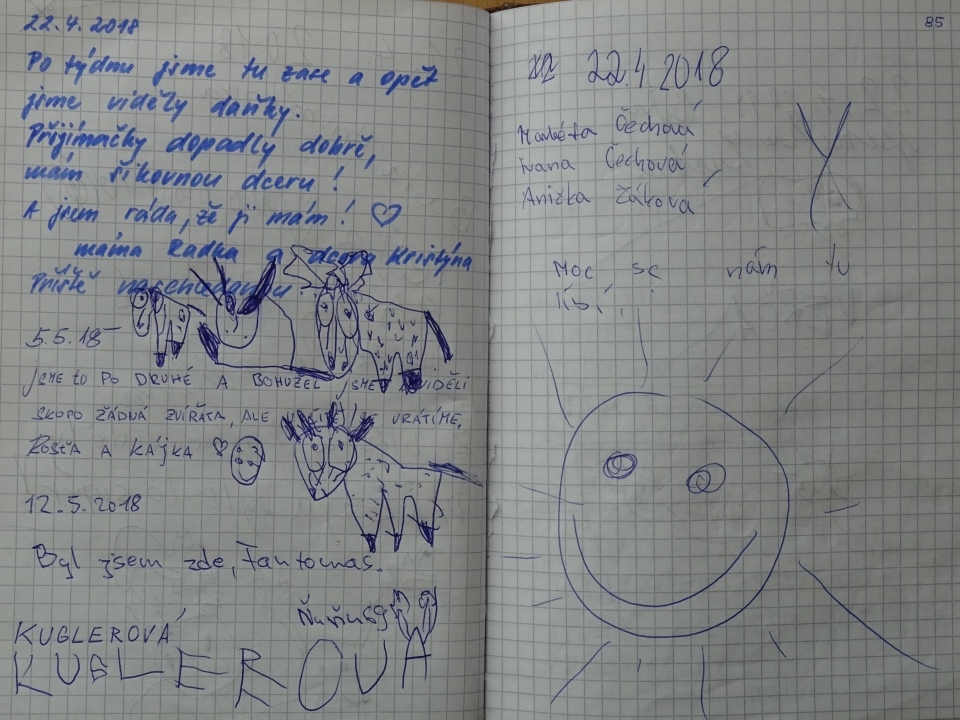 22.4.2018
Po týdnu jsme tu zase a opět
jsme viděly daňky.
Přijímačky dopadly dobře,
mám šikovnou dceru!
A jsem ráda, že ji mám! ♡
máma Radka a dcera Kristýna
Příště nashledanou!
5.5.18
JSME tu PO DRUHÉ A BOHUŽEL JSME NEVIDĚLI
SKORO ŽÁDNÁ ZVÍŘATA, ALE URČITĚ SE VRÁTÍME,
ROSŤA A KÁJKA ♡
12.5.2018
Byl jsem zde, Fantomas.
KUGLEROVÁ
KUGLEROVÁ
85
22.4.2018
Markéta Čechová
Ivana Čechová
Anička Žáková
Moc se nám tu
líbí